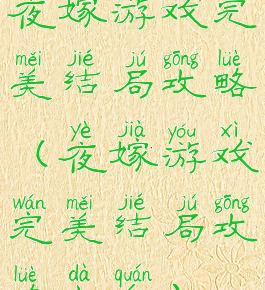 夜嫁游戏完
měi jié jú gōng lüè
美结局攻略
yè jià yóu xì
（夜嫁游戏
wán měi jié jú gōng
完美结局攻
lüè dà quán